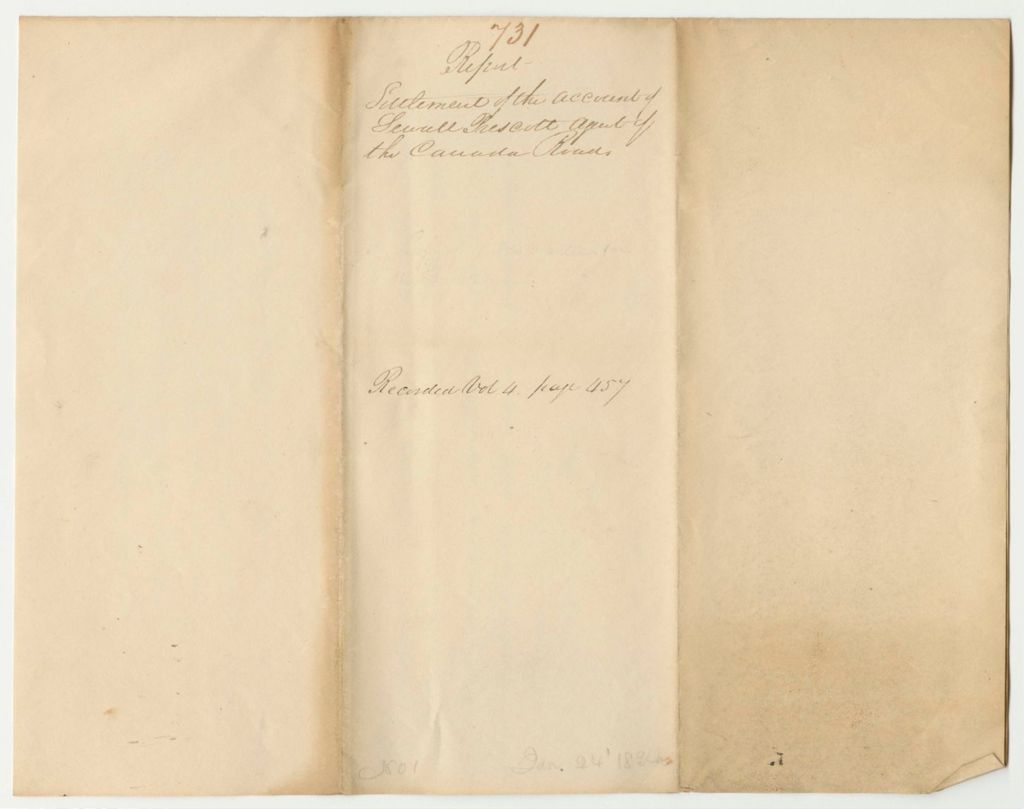 731
Report
Settlement of the account of
Sewall Prescott agent of
the Canada Road
Recorded Vol 4. page 457
No 1 Jan. 24